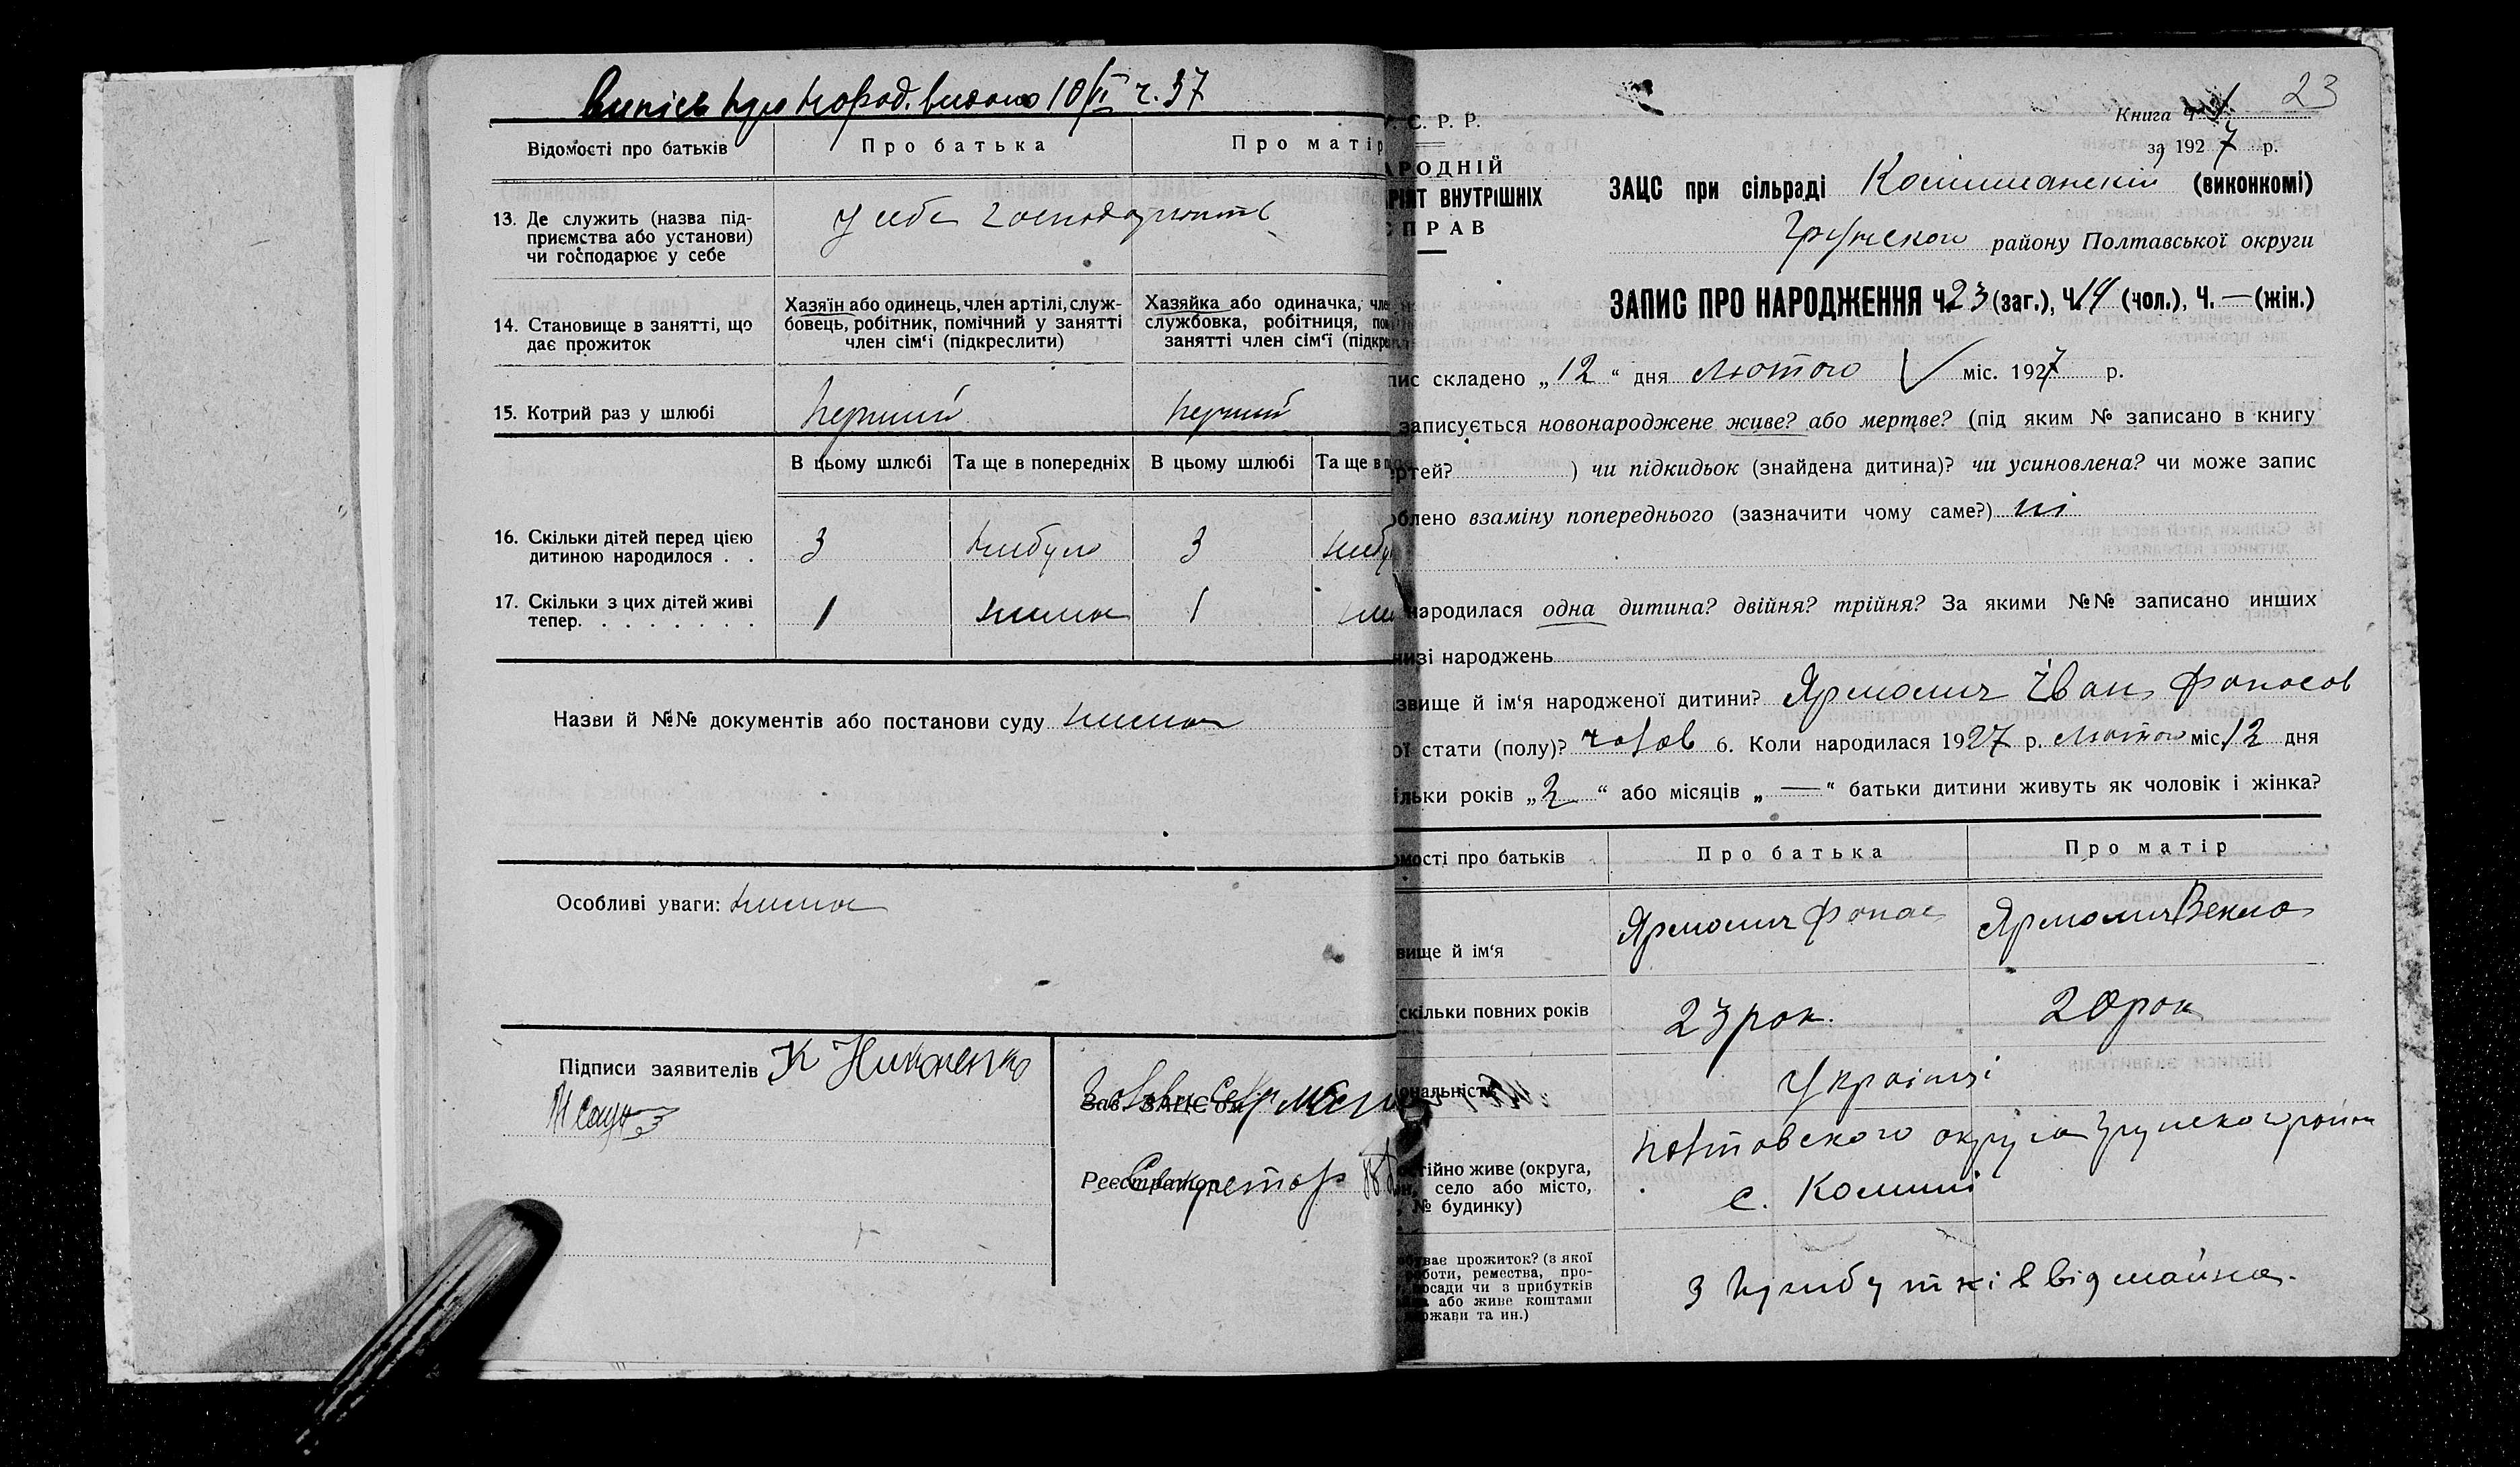 Випись про народ. видано 10/II ч. 37
Відомості про батьків
Про батька
Про матір
13. Де служить (назва під-
приємства або установи)
чи господарює у себе
у себе господарюють
14. Становище в занятті, що
дає прожиток
Хазяїн або одинець, член артілі, служ-
бовець, робітник, помічний у занятті
член сім'ї (підкреслити)
Хазяйка або одиначка, чле
службовка, робітниця, по
занятті член сім'ї (підкре
15. Котрий раз у шлюбі
перший
перший
В цьому шлюбі
Та ще в попередніх
В цьому шлюбі
Та ще в
16. Скільки дітей перед цією
дитиною народилося . .
3
небуло
3
небу
17. Скільки з цих дітей живі
тепер. . . . . . . .
1
нима
1
ни
Назви й №№ документів або постанови суду нима
Особливі уваги: нима
Підписи заявителів К
Зав. ЗАЦС'ом
Голова
Реєстратор
Секретар
23
Книга Ч. 1
за 1927 р.
С. Р. Р.
АРОДНІЙ
РІЯТ ВНУТРІШНІХ
ПРАВ
ЗАЦС при сільраді (виконкомі)
Грунського району Полтавської округи
ЗАПИС ПРО НАРОДЖЕННЯ Ч. 23 (заг.), Ч. 14 (чол.), Ч. — (жін.)
пис складено „12“ дня лютого міс. 1927 р.
записується новонароджене живе? або мертве? (під яким № записано в книгу
ртей? ) чи підкидьок (знайдена дитина)? чи усиновлена? чи може запис
блено взаміну попереднього (зазначити чому саме?) ні
народилася одна дитина? двійня? трійня? За якими №№ записано инших
изі народжень
звище й ім'я народженої дитини? Ярмолич Іван Фопасов
ої стати (полу)? чолов 6. Коли народилася 1927 р. лютого міс. 12 дня
ільки років „2“ або місяців „—“ батьки дитини живуть як чоловік і жінка?
мості про батьків
Про батька
Про матір
вище й ім'я
Ярмолич Фопас
Ярмолич Векла
скільки повних років
23 рок.
20 рок
ональність
Українці
стійно живе (округа,
он, село або місто,
№ будинку)
Полтавского округа Грунского район
с. Комиші
обуває прожиток? (з якої
роботи, ремества, про-
посади чи з прибутків
на або живе коштами
ржави та ин.)
З прибутків від майна.